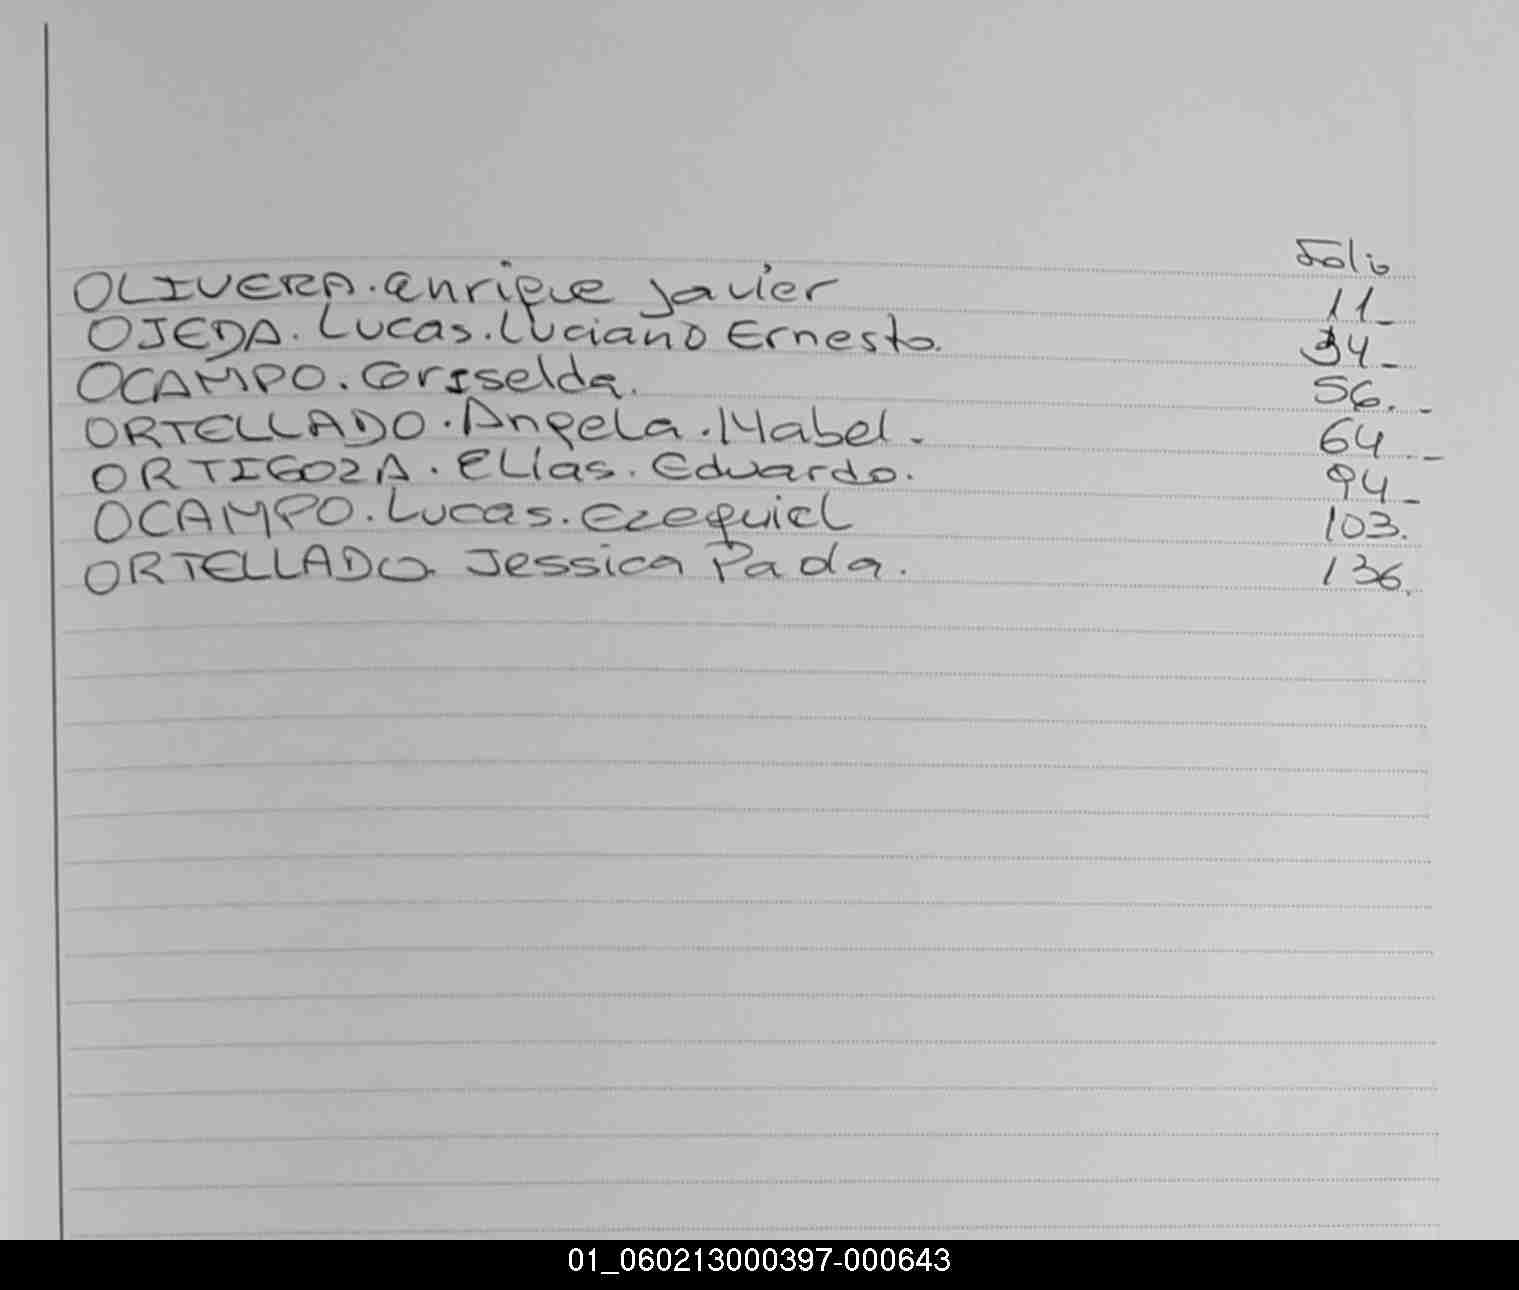 Folio
OLIVERA. Enrique Javier 11_
OJEDA. Lucas. Luciano Ernesto. 34_
OCAMPO. Griselda. 56._
ORTELLADO. Angela. Mabel. 64._
ORTIGOZA. Elías. Eduardo. 94_
OCAMPO. Lucas. Ezequiel 103.
ORTELLADO. Jessica Paola. 136.
01_060213000397-000643